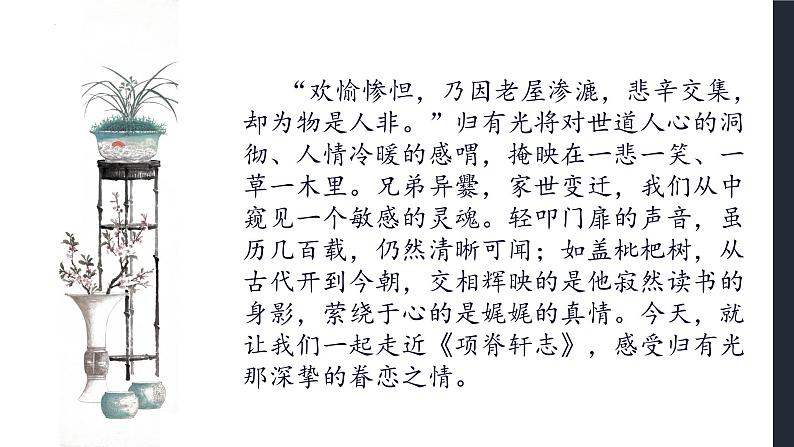 “欢愉惨怛，乃因老屋渗漉，悲辛交集，
却为物是人非。”归有光将对世道人心的洞
彻、人情冷暖的感喟，掩映在一悲一笑、一
草一木里。兄弟异爨，家世变迁，我们从中
窥见一个敏感的灵魂。轻叩门扉的声音，虽
历几百载，仍然清晰可闻；如盖枇杷树，从
古代开到今朝，交相辉映的是他寂然读书的
身影，萦绕于心的是娓娓的真情。今天，就
让我们一起走近《项脊轩志》，感受归有光
那深挚的眷恋之情。